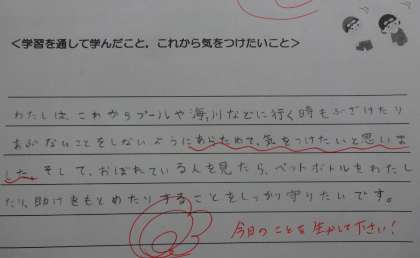 <学習を通して学んだこと，これから気をつけたいこと>
わたしは、これからプールや海,川などに行く時もふざけたり
あぶないことをしないようにあらためて、気をつけたいと思いま
した。そして、おぼれている人を見たら、ペットボトルをわたし
たり、助けをもとめたりすることをしっかり守りたいです。
今日のことを生かして下さい！